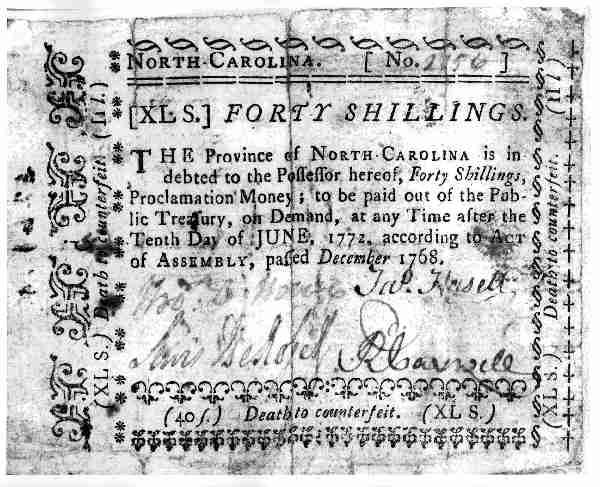 NORTH-CAROLINA. [ No. 2756 ]
[XL S.] FORTY SHILLINGS.
THE Province of NORTH-CAROLINA is in
debted to the Possessor hereof, Forty Shillings,
Proclamation Money; to be paid out of the Pub-
lic Treasury, on Demand, at any Time after the
Tenth Day of JUNE, 1772, according to ACT
of ASSEMBLY, passed December 1768.
Jas. Hasell
Lewis DeRosset R Caswell
(40 s.) Death to counterfeit. (XL S.)
(XL S.) Death to counterfeit. (II l.)
(XL S.) Death to counterfeit. (II l.)